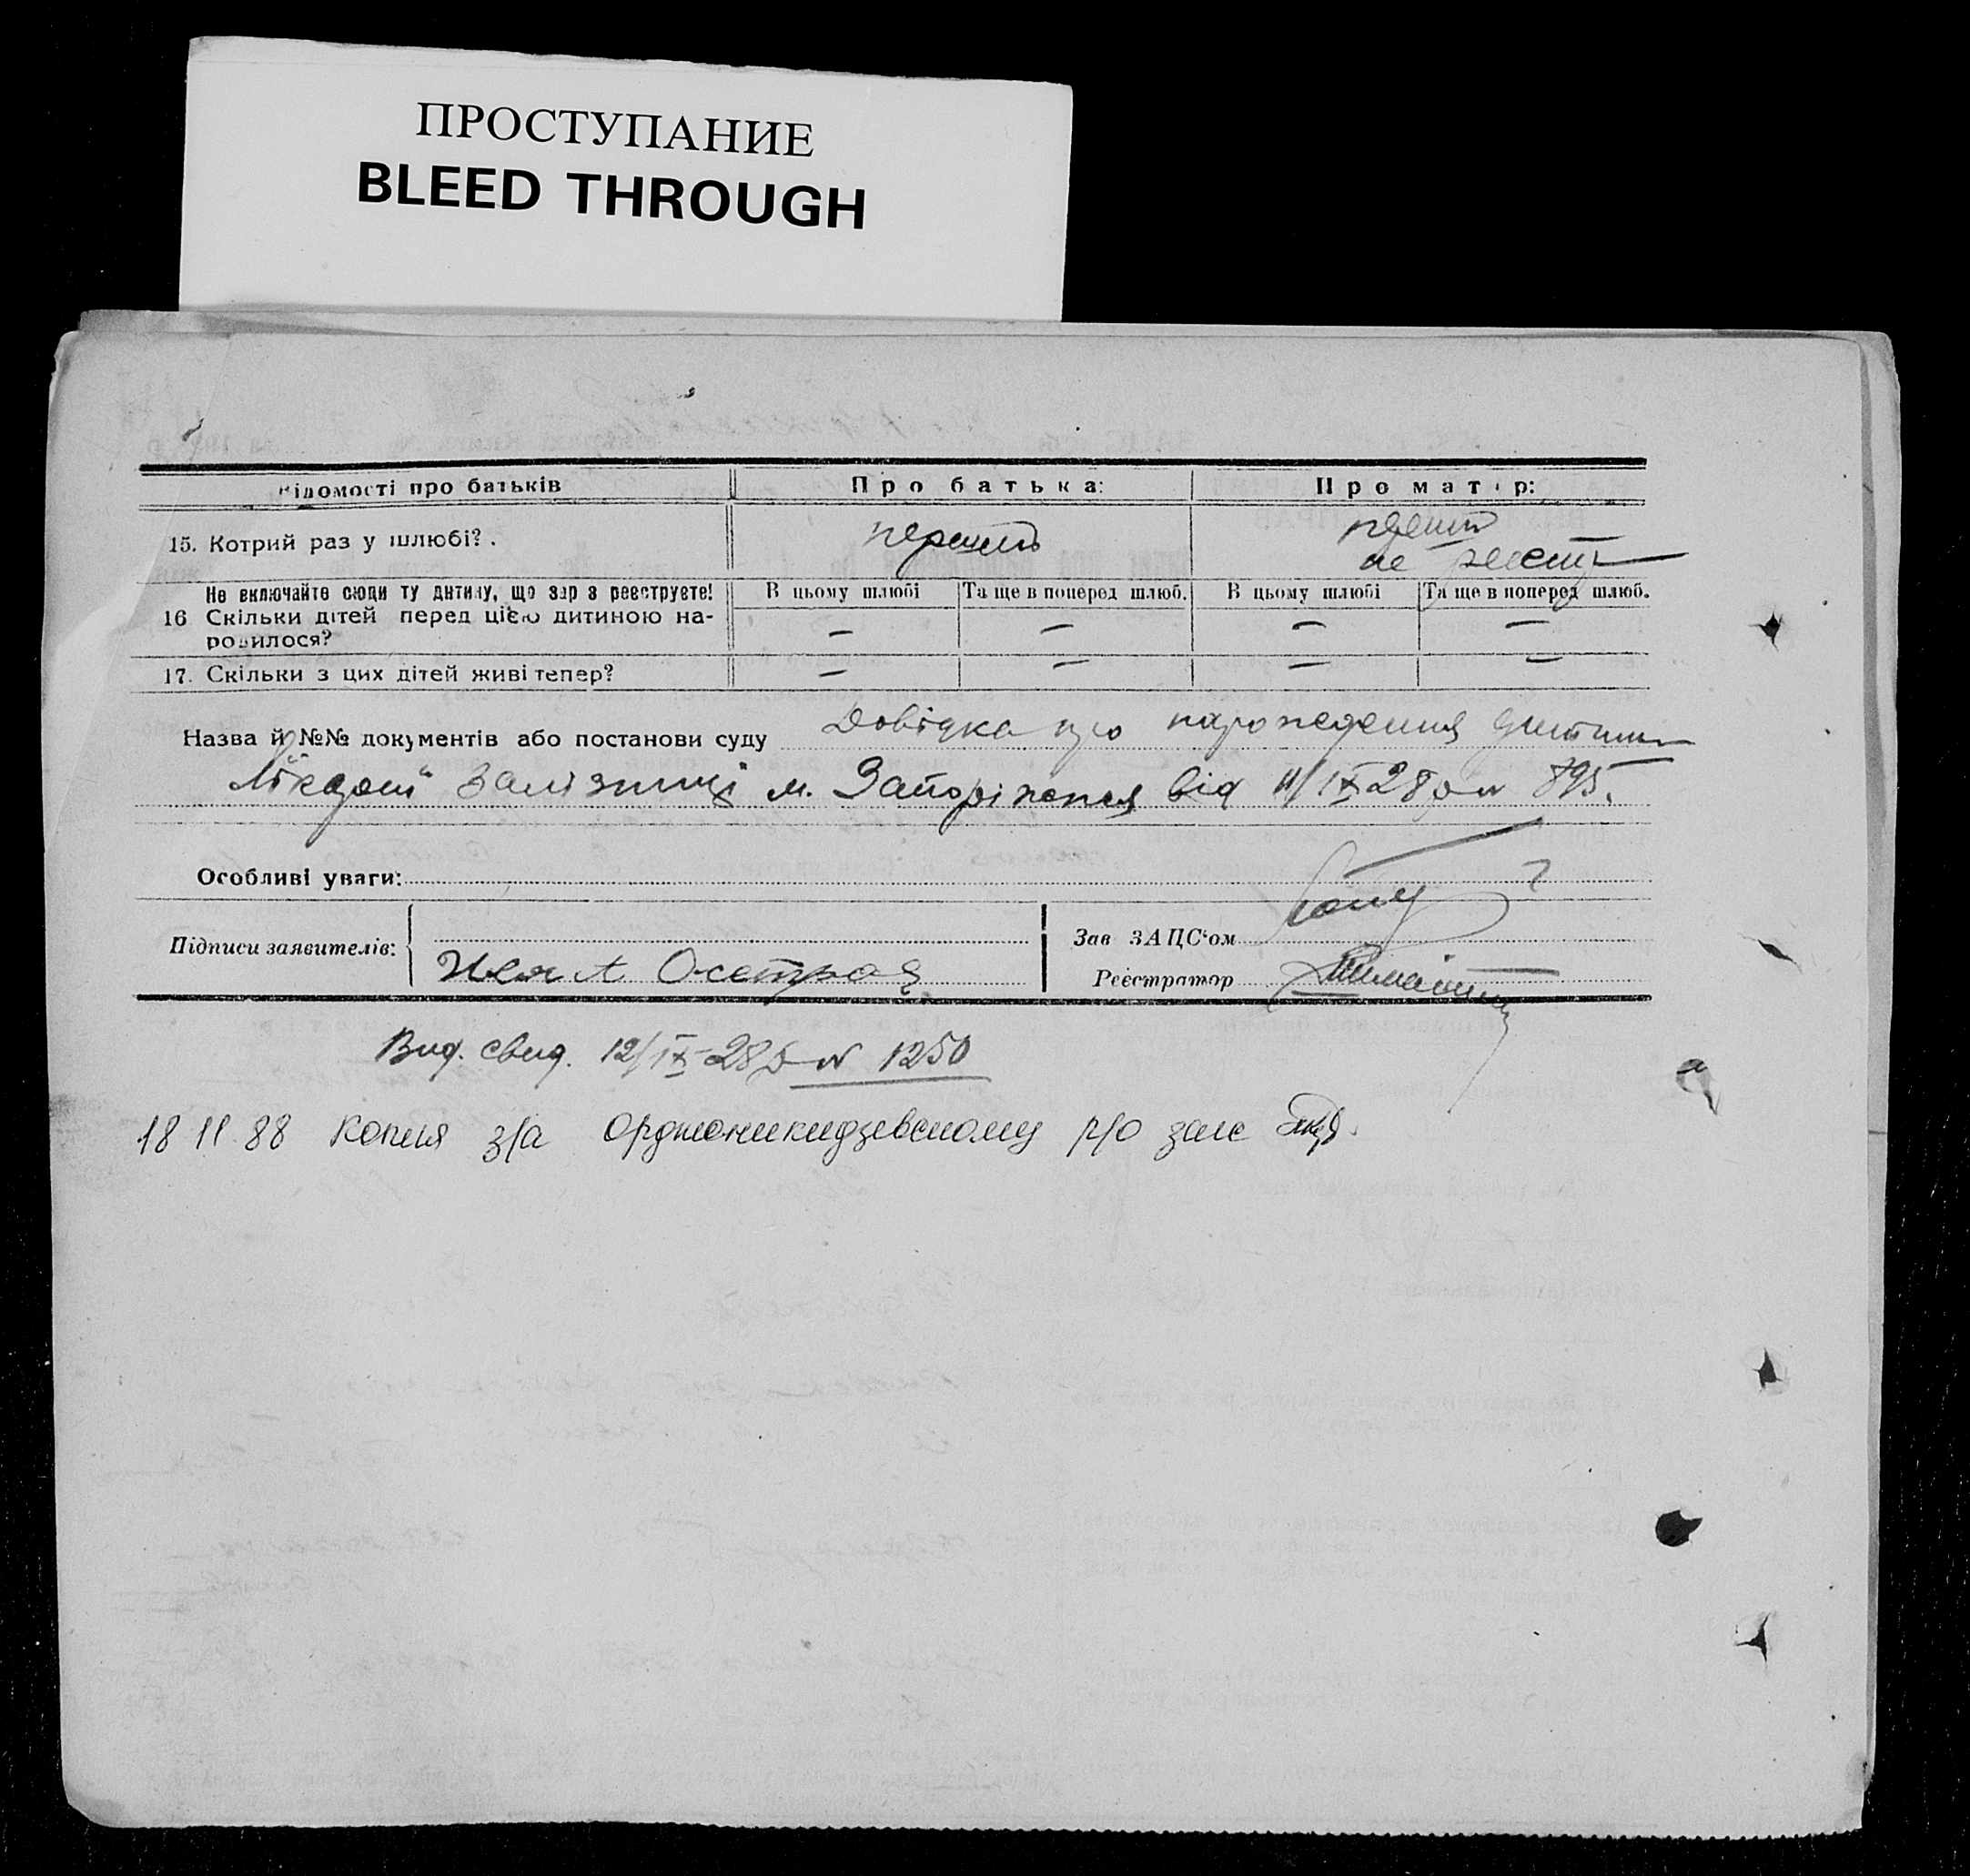 ПРОСТУПАНИЕ
BLEED THROUGH
Відомості про батьків
Про батька:
Про матір:
15. Котрий раз у шлюбі?.
перший
перший
не реєстр
Не включайте сюди ту дитину, що зараз реєструєте!
В цьому шлюбі
Та ще в поперед шлюб.
В цьому шлюбі
Та ще в поперед шлюб.
16 Скільки дітей перед цією дитиною на-
родилося?
— — — —
17. Скільки з цих дітей живі тепер?
— — — —
Назва й №№ документів або постанови суду Довідка про народження дитини
Лікарні Залізниці м. Запоріжжя від 11/IX 28 р № 895.
Особливі уваги:
Підписи заявителів:
Зав ЗАЦС'ом
Осетров
Реєстратор
Вид. свид. 12/IX-28 р № 1250
18 11 88 Копия з/а Орджоникидзевскому р/о загс